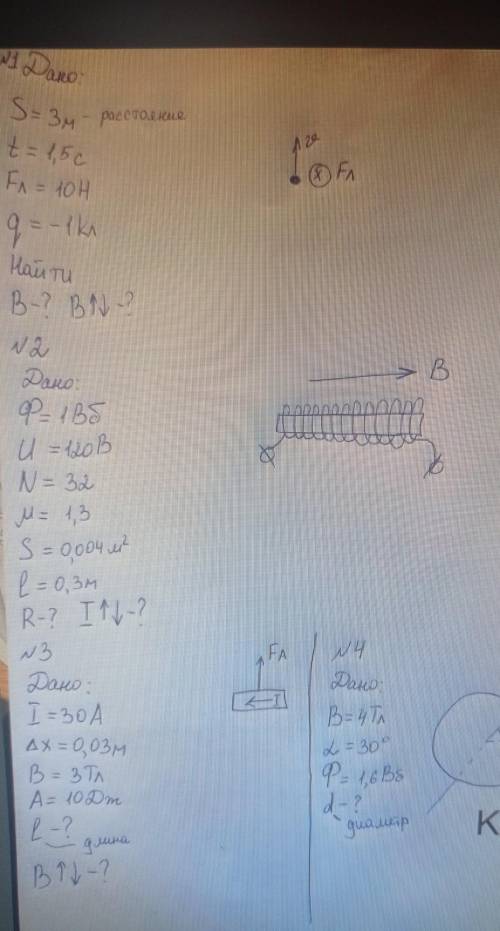 №1 Дано:
S = 3м - расстояние
t = 1,5с
Fл = 10Н
q = -1Кл
Найти
B-? B↑↓-?
v
Fл
№2
Дано:
Ф = 1Вб
U = 120В
N = 32
μ = 1,3
S = 0,004м²
l = 0,3м
R-? I↑↓-?
B
№3
Дано:
I = 30А
Δx = 0,03м
B = 3Тл
A = 10Дж
l-?
длина
B↑↓-?
Fл
I
№4
Дано:
B = 4Тл
α = 30°
Ф = 1,6Вб
d-?
диаметр
К